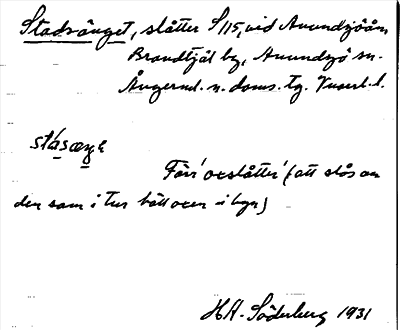 Stadsänget, slåtter S/15, vid Anundsjöån
Brandtjäl by, Anundsjö sn.
Ångerml. n. doms. tg. Vnorrl. l.
stásæŋe
Förr 'oxslåtter' (att slås av
den som i tur hållit oxen i byn)
HH. Söderberg 1931